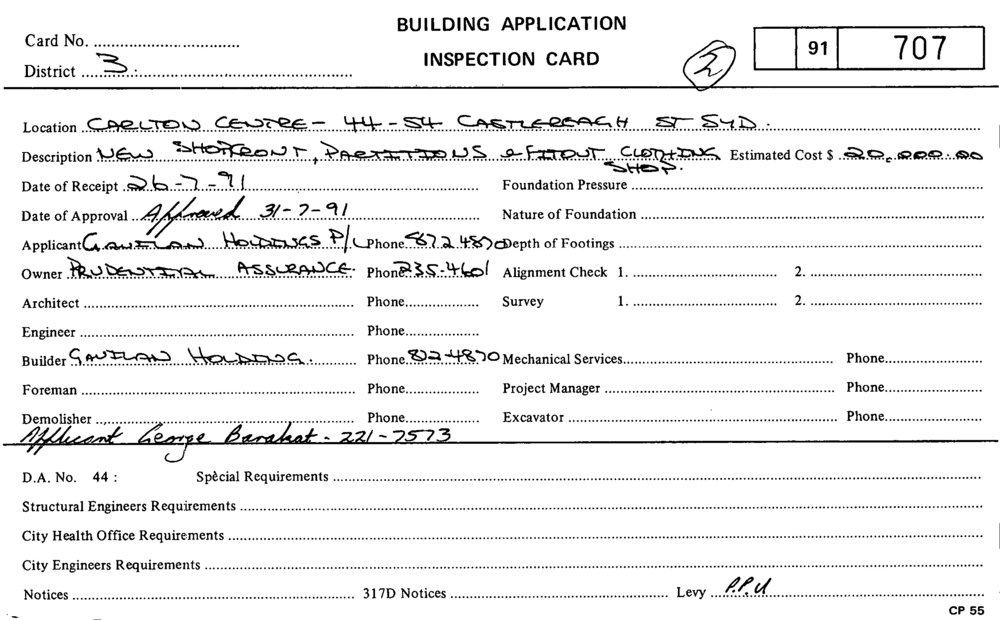 BUILDING APPLICATION
INSPECTION CARD
Card No.
District 3
2
91 707
Location CARLTON CENTRE - 44-54 CASTLEREAGH ST SYD.
Description NEW SHOPFRONT, PARTITIONS & FITOUT CLOTHING SHOP. Estimated Cost $ 20,000.00
Date of Receipt 26-7-91 Foundation Pressure
Date of Approval Approved 31-7-91 Nature of Foundation
Applicant GAVILAN HOLDINGS P/L Phone 872 4870 Depth of Footings
Owner PRUDENTIAL ASSURANCE. Phone 235-4601 Alignment Check 1. 2.
Architect Phone Survey 1. 2.
Engineer Phone
Builder GAVILAN HOLDING. Phone 872-4870 Mechanical Services Phone
Foreman Phone Project Manager Phone
Demolisher Phone Excavator Phone
Applicant George Barakat - 221-7573
D.A. No. 44 : Spècial Requirements
Structural Engineers Requirements
City Health Office Requirements
City Engineers Requirements
Notices 317D Notices Levy P.P.U
CP 55